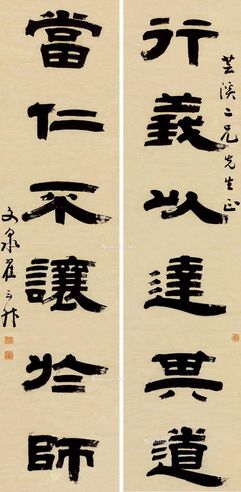 芸溪二兄先生正
行義以達其道
當仁不讓於師
文泉翟云升